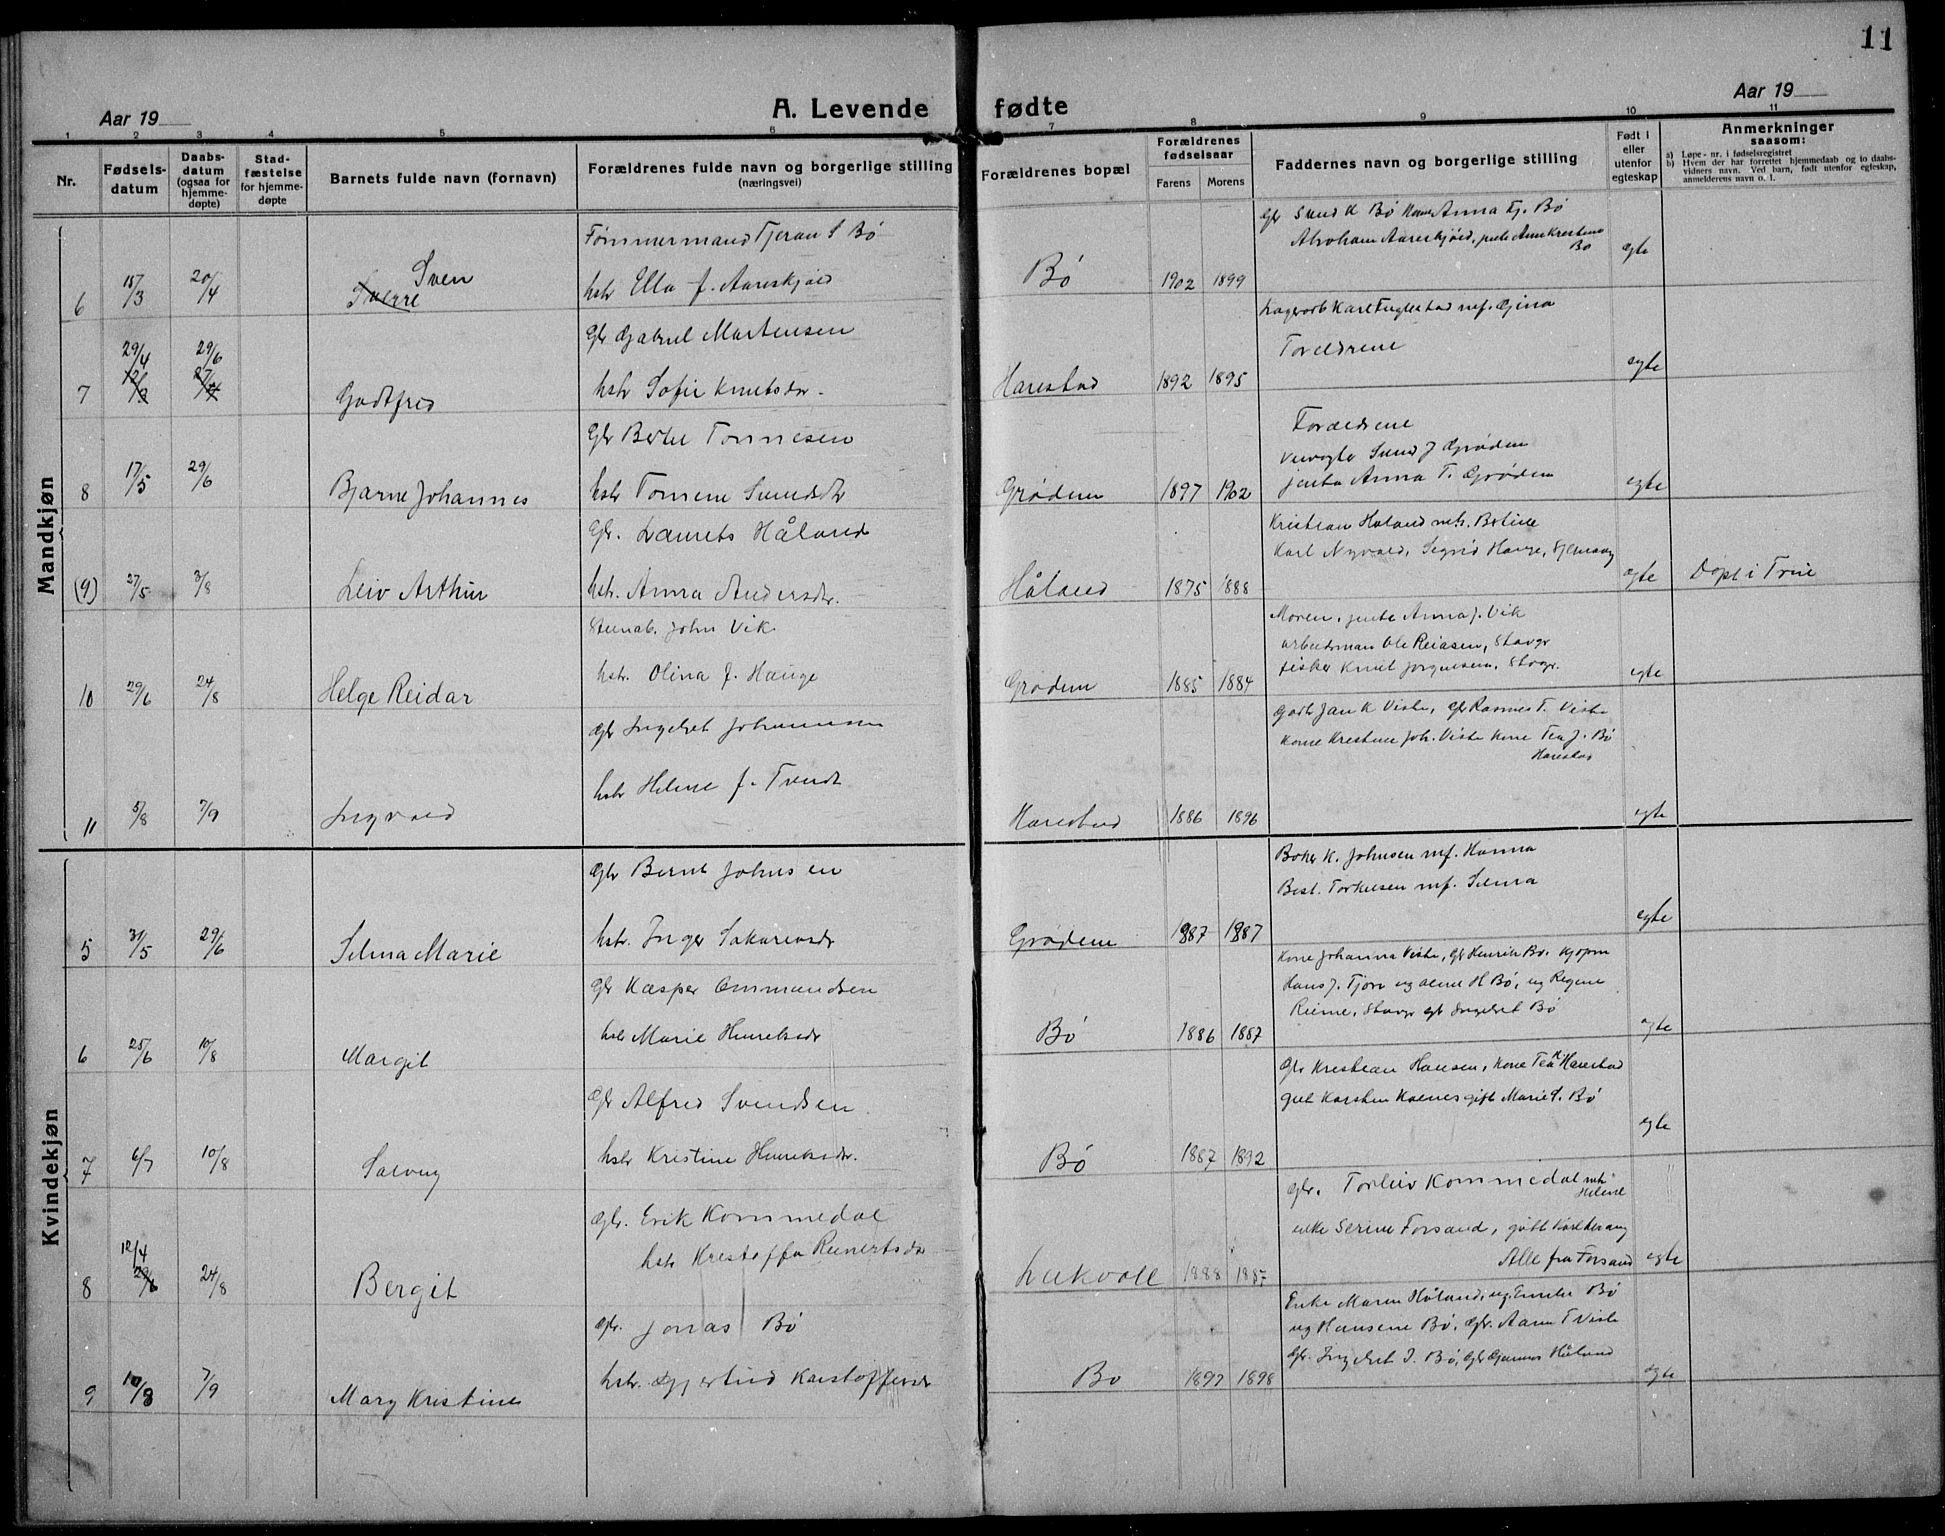 11
Aar 19
A. Levende fødte
Aar 19
1 2 3 4 5 6 7 8 9 10 11
Nr.
Fødsels-
datum
Daabs-
datum
(ogsaa for
hjemme-
døpte)
Stad-
fæstelse
for hjemme-
døpte
Barnets fulde navn (fornavn)
Forældrenes fulde navn og borgerlige stilling
(næringsvei)
Forældrenes bopæl
Forældrenes
fødselsaar
Farens Morens
Faddernes navn og borgerlige stilling
Født i
eller
utenfor
egteskap
Anmerkninger
saasom:
a) Løpe-nr. i fødselsregistret
b) Hvem der har forrettet hjemmedaab og to daabs-
vidners navn. Ved barn, født utenfor egteskap,
anmelderens navn o. l.
Mandkjøn
Tømmermand Tjeran S Bø
Sven
6 18/3 20/4 Sverre
hstr Ella f. Aareskjold
Bø 1902 1899
Anna Tj. Bø
Abraham Aareskjold,
Bø
egte
Gbr Gabriel Martensen
29/4 29/6
7 Godtfred
hstr Sofie Knutsdr.
Harestad 1892 1895
Karl Fuglestad mf. Gina
Foreldrene
egte
Gbr Bertel Tønnesen
8 17/5 29/6 Bjarne Johannes
hstr Tomine Svendsdtr
Grødem 1897 1902
Forældrene
Svend J Grødem
jente Anna T. Grødem
egte
Gbr. Laurets Håland
(9) 27/5 3/8 Leiv Arthur
hstr. Anna Andersdtr.
Håland 1875 1888
Kristian Håland mh. Botine
Karl Nyvold, Sigrid Hauge,
egte
Døpt i
John Vik
10 29/6 24/8 Helge Reidar
hstr. Olina J. Hauge
Grødem 1885 1884
Moren, jente Anna J. Vik
arbeidsman Ole Reiasen, Stavgr
fisker Knut Jørgensen, Stavgr.
egte
gbr Ingebret Johannessen
11 5/8 7/9 Ingvald
hstr Helene J. Tvedt
Harestad 1886 1896
Jan K Viste, Gbr Rasmus T. Viste
Kone Kristine Joh. Viste Kone Tea J. Bø
Harestad
egte
Kvindekjøn
Gbr Bernt Johnsen
5 31/5 29/6 Selma Marie
hstr. Inger Sakariasdr
Grødem 1887 1887
K. Johnsen mf. Hanna
Best. Torkelsen mf. Selma
egte
Gbr Kasper Ommundsen
6 25/6 10/8 Margit
hstr Marie Henreksdr
Bø 1886 1887
Kone Johanna Viste, Gbr Henrik Bø. Kjøpm
Hans J. Bø, og Regine
Stavgr gbr Ingebret Bø
egte
Gbr Alfred Svendsen
7 6/7 10/8 Solveig
hstr Kristine Henreksdr.
Bø 1887 1892
Gbr Kristian Hansen, Kone Tea Harestad
Karsten Kalnes gift Marie S. Bø
egte
Gbr. Erik Kommedal
12/4
8 29/6 24/8 Bergit
hstr Kristoffa Reinertsdr
1888 1887
Gbr. Torleiv Kommedal mh.
Helene
enke Serine Forsand,
Alle fra Forsand
egte
Gbr. Jonas Bø
9 10/8 7/9 Mary Kristine
hstr. Gjertrud Kristoffersdr
Bø 1897 1898
Enke Maren Håland, og Emilie Bø
og Hansine Bø, Gbr. T Viste
Gbr. Ingebret J. Bø, Gbr Håland
egte